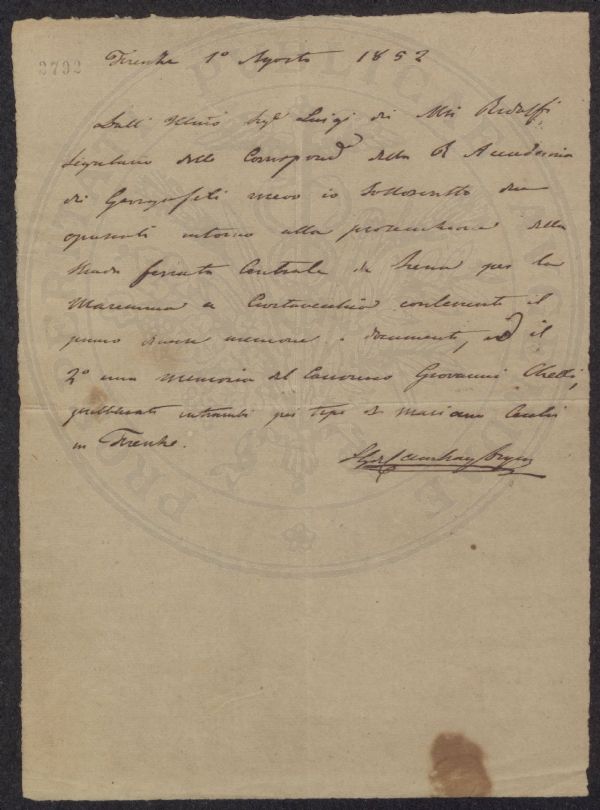 2792
Firenze 1° Agosto 1852
Dall' Illmo Sigr Luigi dei Msi Ridolfi
Segretario delle Corrispond della R Accademia
dei Georgofili ricevo io Sottoscritto due
opuscoli intorno alla prosecuzione della
Strada ferrata Centrale da Siena per la
Maremma a Civitavecchia contenenti il
primo memorie e documenti, ed il
2° una memoria del Canonico Giovanni Chelli,
pubblicati entrambi pei tipi di Mariano Cecchi
in Firenze.